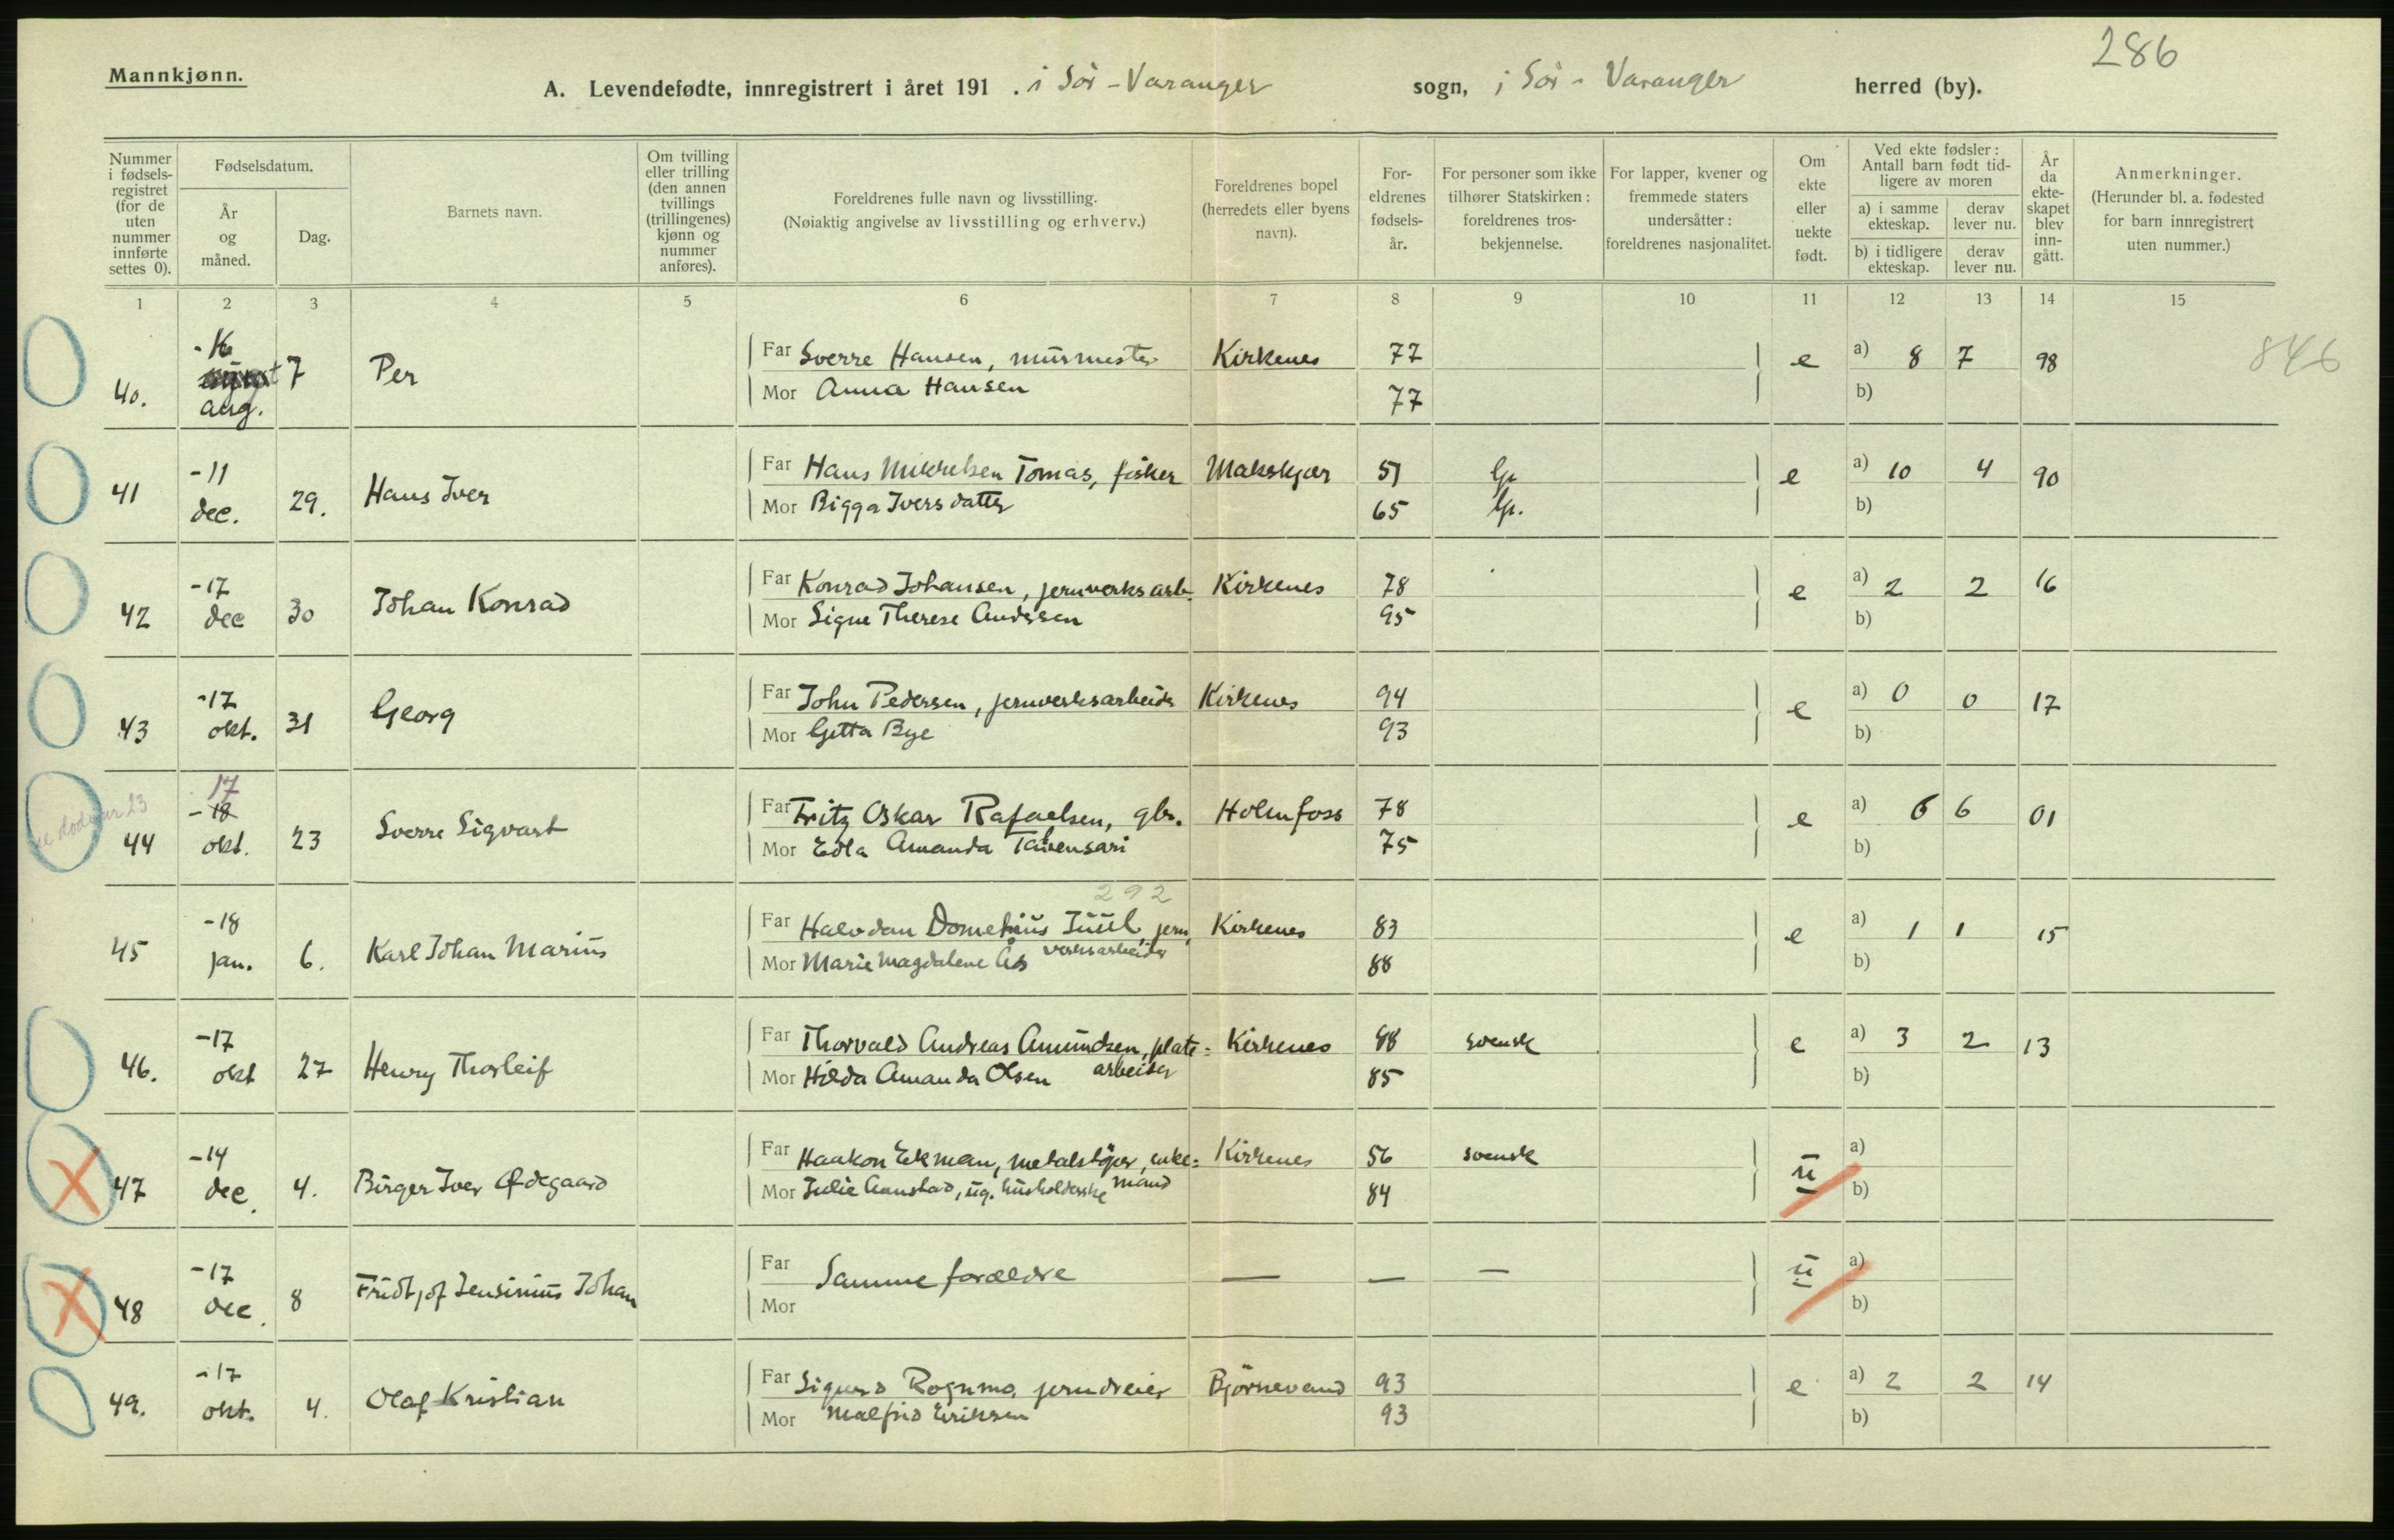 286
Mannkjønn.
A. Levendefødte, innregistrert i året 191 . i Sör-Varanger sogn, i Sör-Varanger herred (by).
Nummer i fødsels-registret (for de uten nummer innførte settes 0).
Fødselsdatum.
År og måned.
Dag.
Barnets navn.
Om tvilling eller trilling (den annen tvillings (trillingenes) kjønn og nummer anføres).
Foreldrenes fulle navn og livsstilling.
(Nøiaktig angivelse av livsstilling og erhverv.)
Foreldrenes bopel (herredets eller byens navn).
For-eldrenes fødsels-år.
For personer som ikke tilhører Statskirken: foreldrenes tros-bekjennelse.
For lapper, kvener og fremmede staters undersåtter: foreldrenes nasjonalitet.
Om ekte eller uekte født.
Ved ekte fødsler: Antall barn født tid-ligere av moren
a) i samme ekteskap.
derav lever nu.
b) i tidligere ekteskap.
derav lever nu.
År da ekte-skapet blev inn-gått.
Anmerkninger.
(Herunder bl. a. fødested for barn innregistrert uten nummer.)
1 2 3 4 5 6 7 8 9 10 11 12 13 14 15
40. -16 aug. 7 Per Far Sverre Hansen, murmester Kirkenes 77 e a) 8 7 98 846
Mor Anna Hansen 77 b)
41 -11 dec. 29. Hans Iver Far Hans Mikkelsen Tomas, fisker 51 e a) 10 4 90
Mor Bigga Iversdatter 65 b)
42 -17 dec 30 Johan Konrad Far Konrad Johansen, jernverksarb. Kirkenes 78 e a) 2 2 16
Mor Signe Therese Andersen 95 b)
43 -17 okt. 31 Georg Far John Pedersen, jernverksarbeider Kirkenes 94 e a) 0 0 17
Mor Gitta Bye 93 b)
44 17 -18 okt. 23 Sverre Sigvart Far Fritz Oskar Rafaelsen, gbr. Holmfoss 78 e a) 6 6 01
Mor Edla Amanda 75 b)
292
45 -18 jan. 6. Karl Johan Marius Far Halvdan Juul, jern, Kirkenes 83 e a) 1 1 15
Mor Marie Magdalene Ås verksarbeider 88 b)
46. -17 okt 27 Henry Thorleif Far Thorvald Andreas Amundsen, plate= Kirkenes 88 svensk e a) 3 2 13
Mor Hilda Amanda Olsen arbeider 85 b)
47 -14 dec. 4. Birger Iver Ødegaard Far Haakon Ekman, metalstöper, enke= Kirkenes 56 svensk u a)
Mor Julie Aanstad, ug. husholderske mand 84 b)
48 -17 dec. 8 Fridtjof Jensinius Johan Far Samme forældre — — — u a)
Mor b)
49. -17 okt. 4. Olaf Kristian Far Sigurd Rognmo, jerndreier Björnevand 93 e a) 2 2 14
Mor Malfrid Eriksen 93 b)